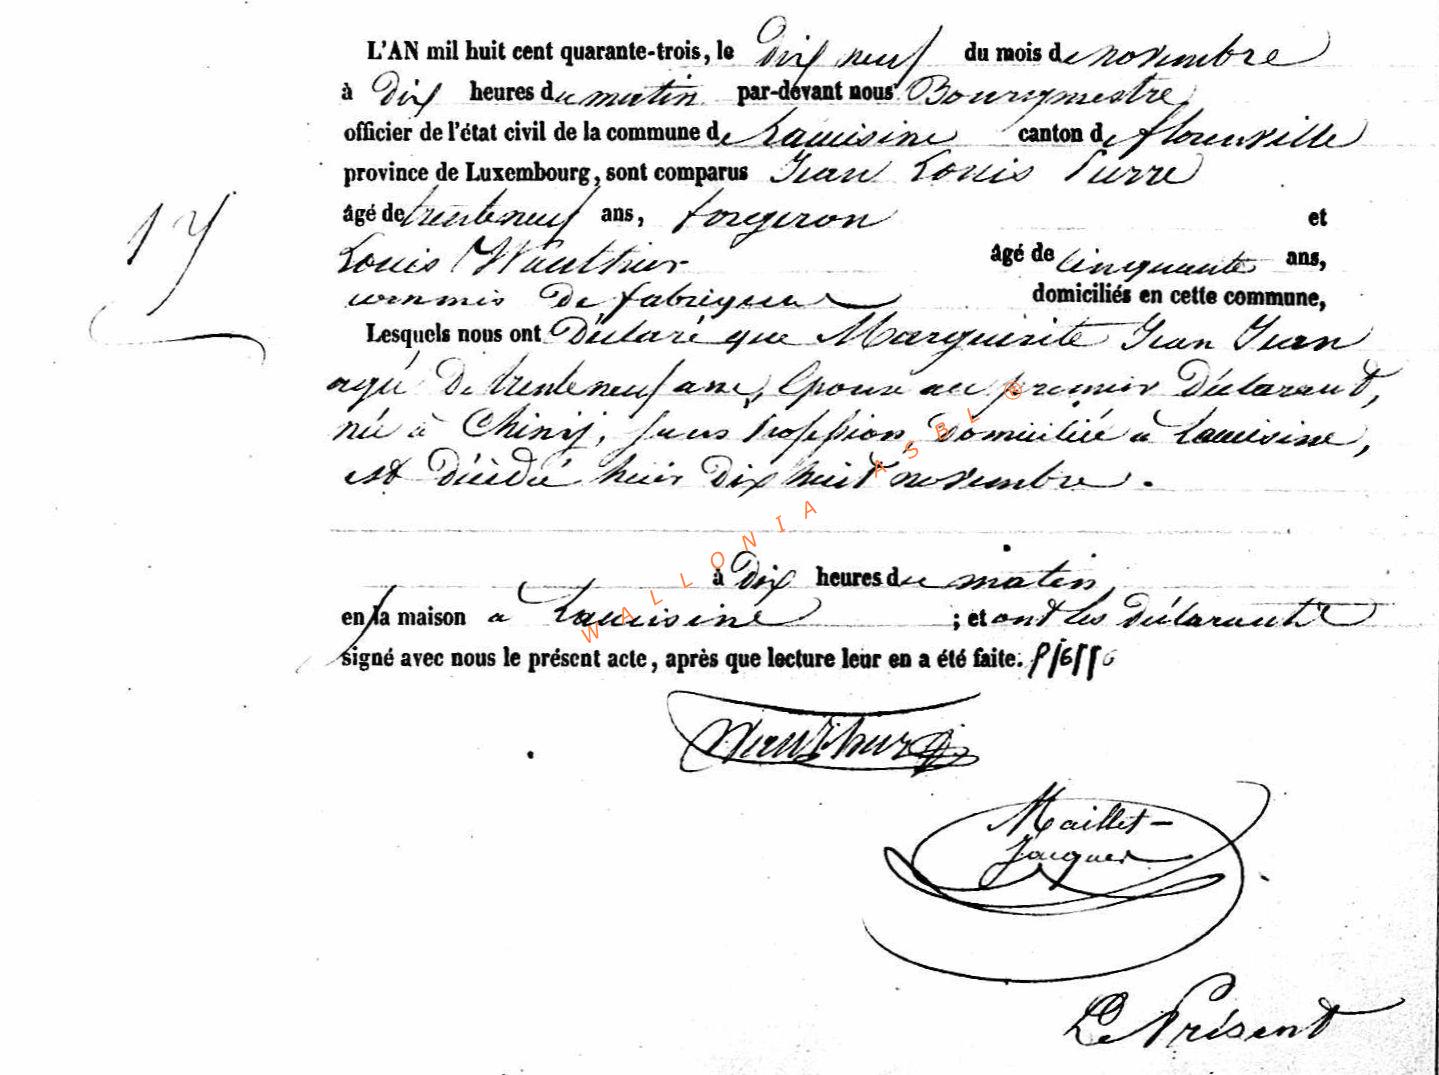 L'AN mil huit cent quarante-trois, le Dix neuf du mois de novembre
à Dix heures du matin par-devant nous Bourgmestre
officier de l'état civil de la commune de Lacuisine canton de florenville
province de Luxembourg, sont comparus Jean Louis Pierre
âgé de trente neuf ans, forgeron et
Louis Wauthier âgé de cinquante ans,
commis De fabrique domiciliés en cette commune,
Lesquels nous ont Déclaré que Marguerite Jean Jean
agée De trente neuf ans, Epouse au premier Déclarant,
née à Chiny, sans Profession, Domiciliée a Lacuisine,
est Décédé hier Dix huit novembre.
à Dix heures du matin,
en la maison a Lacuisine ; et ont les Déclarants
signé avec nous le présent acte, après que lecture leur en a été faite.
Wauthier
Maillet-
Jacques
Le Présent
17
WALLONIA ASBL ®